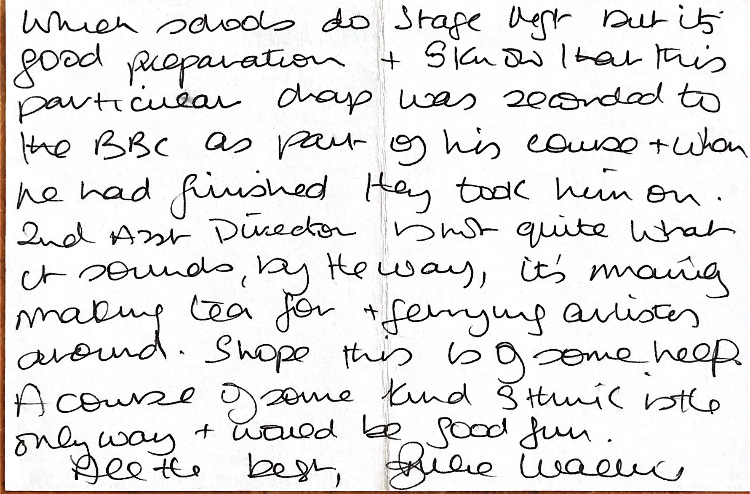 which schools do stage mgt but its
good preparation + I know that this
particular chap was seconded to
the BBC as part of his course + when
he had finished they took him on.
2nd Asst Director is not quite what
it sounds, by the way, it's mainly
making tea for + ferrying artistes
around. I hope this is of some help.
A course of some kind I think is the
only way + would be good fun.
All the best, Julie Walters